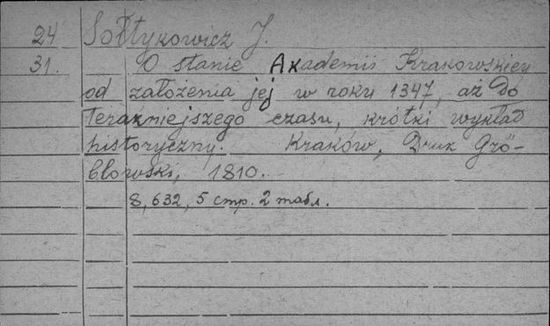 24 Sołtykowicz J.
31. O stanie Akademii Krakowskiey
od założenia jej w roku 1347, aż do
teraźniejszego czasu, krótki wykład
historyczny. Kraków, Druk Grö-
blowski, 1810.
8, 632, 5 стр. 2 табл.